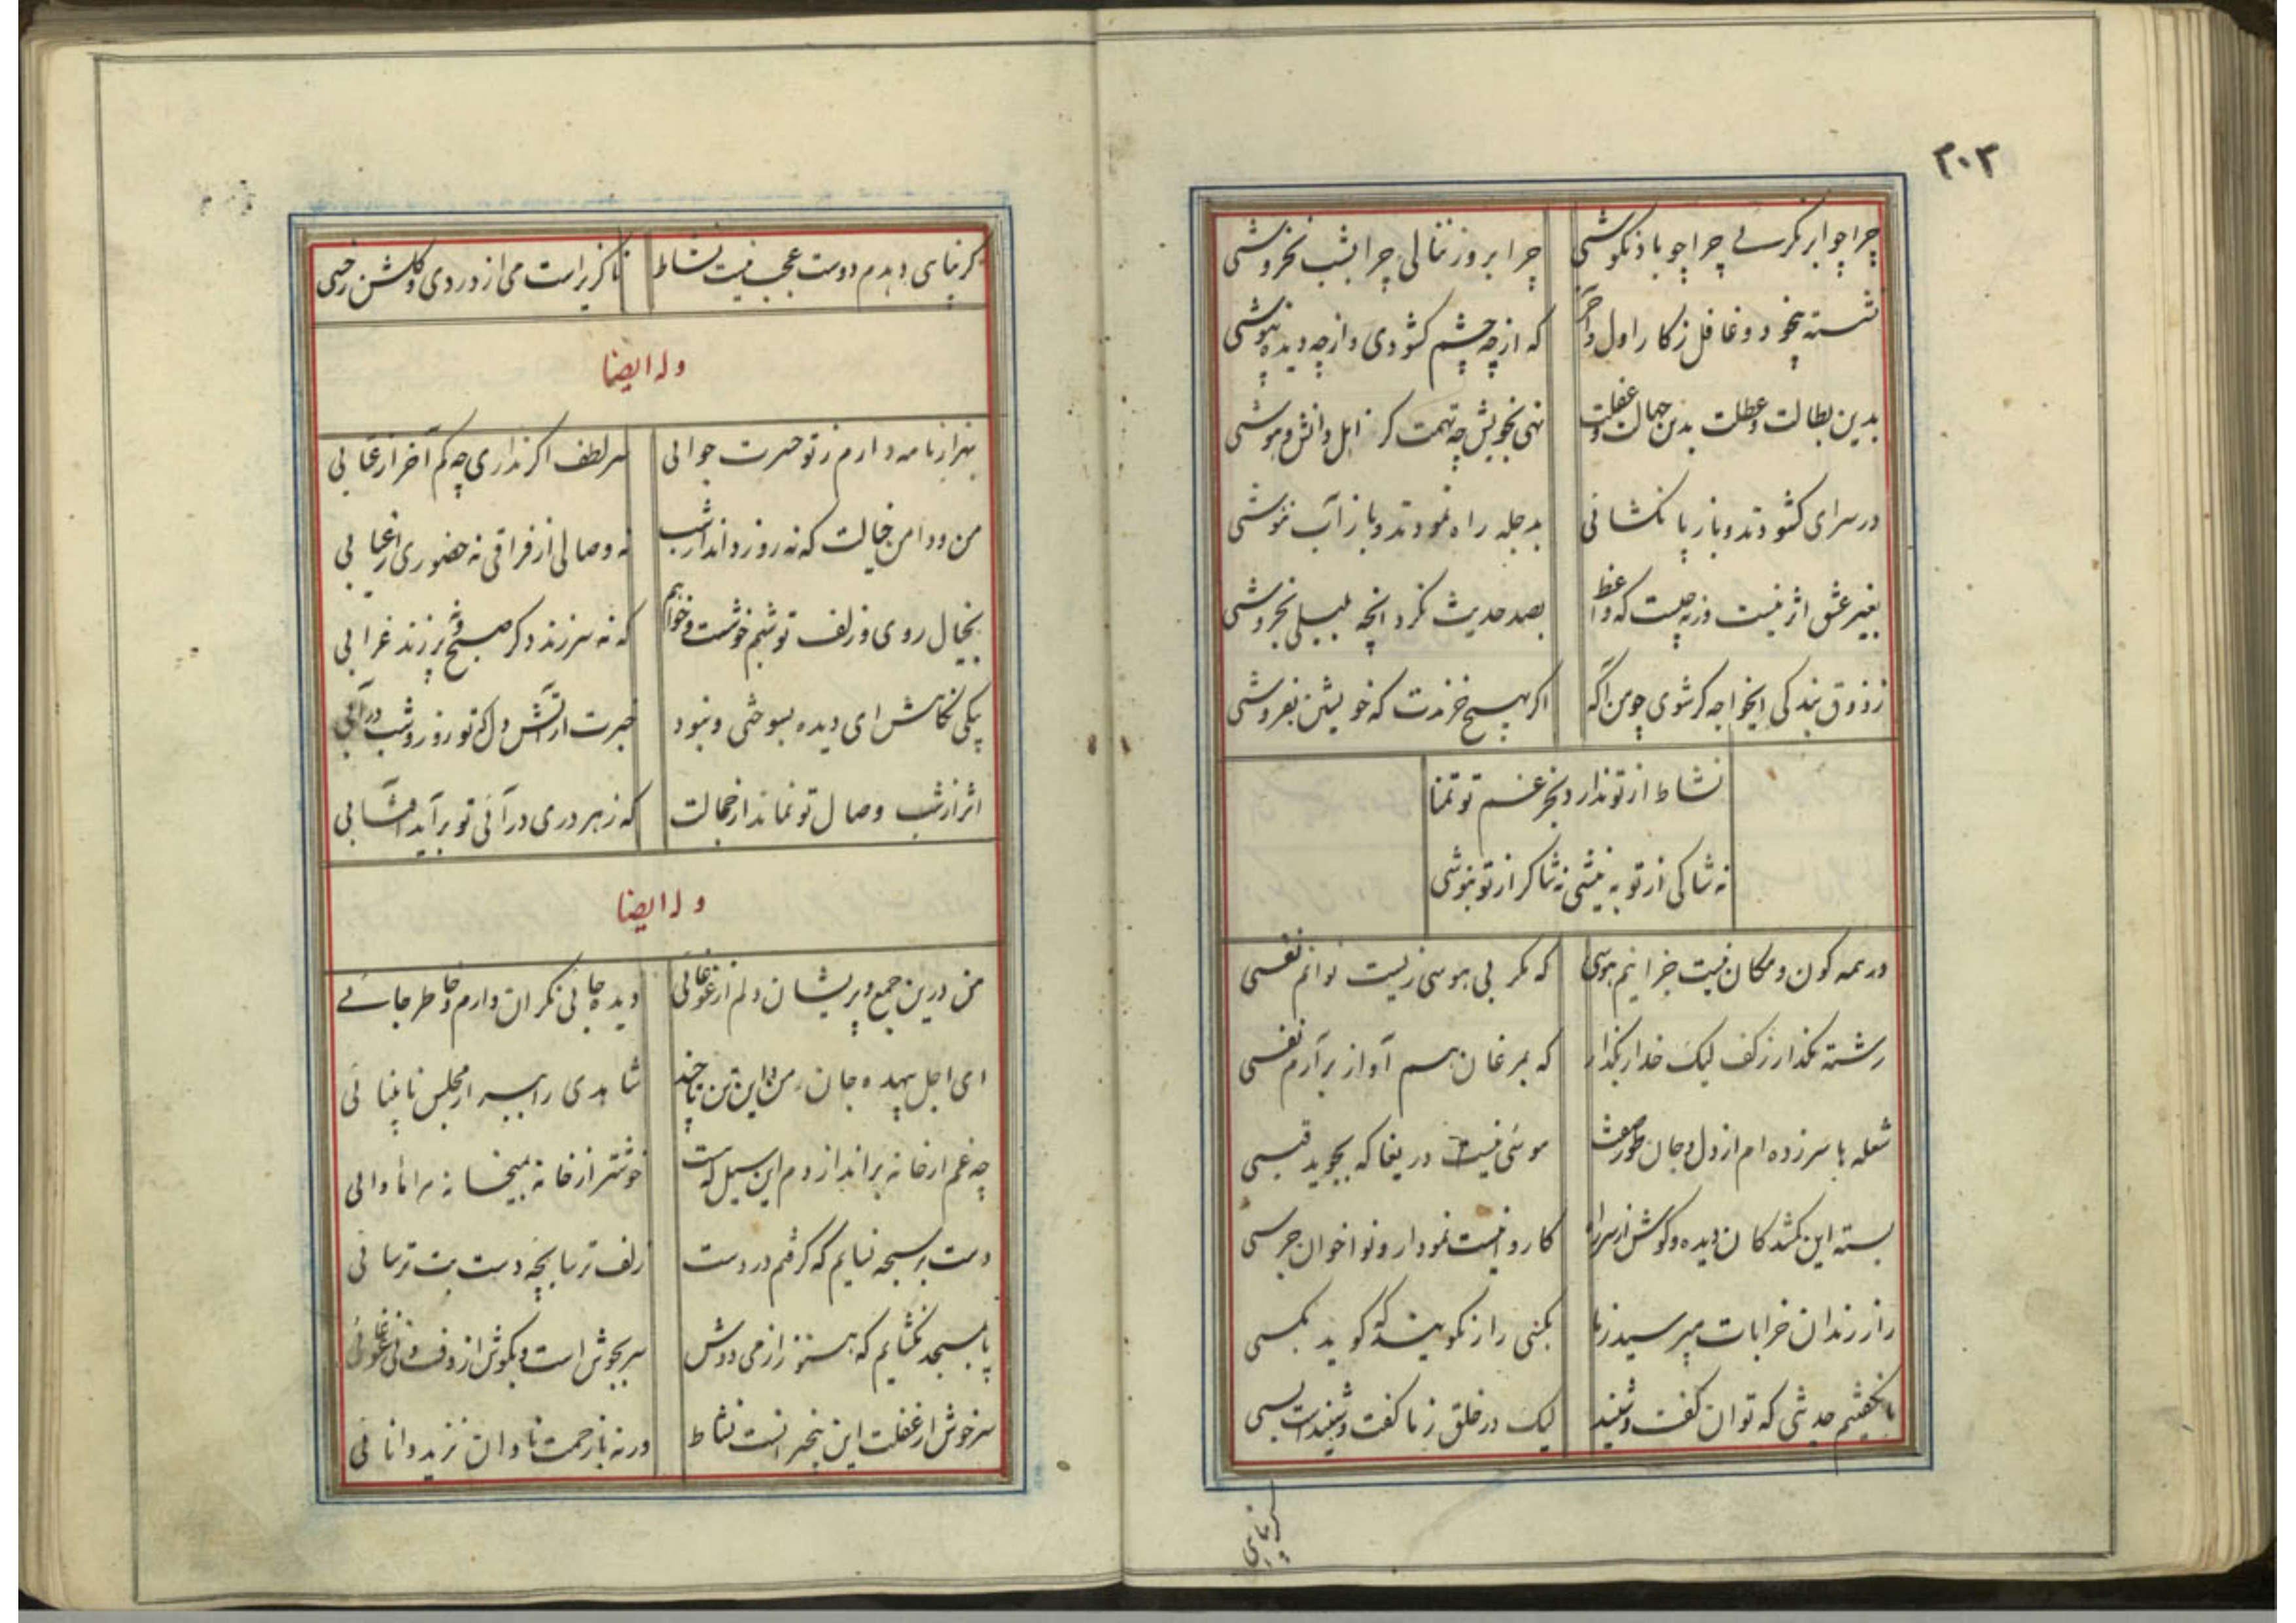 ۲۰۳
چرا چو ابر نگریی چرا چو باد نکوشی
چرا بروز ننالی چرا بشب نخروشی
نشسته بیخود و غافل ز کار اول و آخر
که از چه چشم کشودی و از چه دیده بپوشی
بدین بطالت و عطلت بدین جهالت و غفلت
نهی بخویش چه تهمت کز اهل دانش و هوشی
در سرای کشودند و باز پا نکشائی
بدجله راه نمودند و باز آب ننوشی
بغیر عشق اثر نیست ورنه چیست که واعظ
بصد حدیث نکرد آنچه بلبلی بخروشی
ز ذوق بندکی ایخواجه کر شوی چو من آکه
اکر بهیچ خرندت که خویشتن بفروشی
نشاط از تو ندارد بجز غم تو تمنا
نه شاکی از تو به نیشی نه شاکر از تو بنوشی
در همه کون و مکان نیست جز اینم هوسی
که مکر بی هوسی زیست توانم نفسی
رشته مکذار ز کف لیک خدا را بکذار
که بمرغان هم آواز برآرم نفسی
شعله ها سر زده ام از دل و جان طور صفت
موسی نیست دریغا که بجوید قبسی
بسته این کمشدکان دیده و کوش از سر راه
کاروانیست نمودار و نواخوان جرسی
راز رندان خرابات مپرسید ز ما
بکسی راز نکویند که کوید بکسی
ما نکفتیم حدیثی که توان کفت و شنید
لیک در خلق ز ما کفت و شنید است بسی
کر بپای
کر بپای دهدم دوست عجب نیست نشاط
ناکزیر است می از دردی و کلشن ز خسی
وله ایضا
بهزار نامه دارم ز تو حسرت جوابی
سر لطف اکر نداری چه کم آخر از عتابی
من و دامن خیالت که نه روز داند از شب
نه وصالی از فراقی نه حضوری از غیابی
بخیال روی و زلف تو شبم خوشست و خواهم
که نه سر زند دکر صبح و نه پر زند غرابی
پکی نکاهش ای دیده بسوختی و نبود
خبرت از آتش دل که تو روز و شب در آبی
اثر از شب وصال تو نماند از خجالت
که ز هر دری درآئی تو برآید آفتابی
وله ایضا
من درین جمع و پریشان دلم از غوغائی
دیده جائی نکران دارم و خاطر جائی
ای اجل بیهده جان من و این تن تا چند
شاهدی را ببر از مجلس نابینائی
چه غم ار خانه براندازدم این سیل که هست
خوشتر از خانه بمیخانه مرا ماوائی
دست بر سبحه نیایم که کرفتم در دست
زلف ترسا بچه دست بت ترسائی
پا بمسجد نکشایم که هنوز از می دوش
سر بجوش است و بکوش از دف و نی غوغائی
سرخوش از غفلت این بیخبرانست نشاط
ورنه باز رحمت نادان نزید دانائی